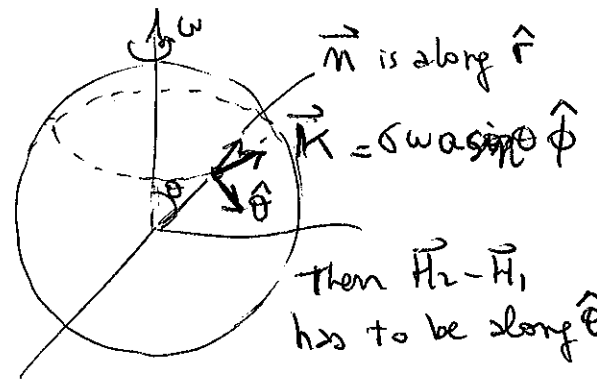 ω
n⃗ is along r̂
K⃗ = σωa sinθ φ̂
θ
θ̂
Then H⃗₂ - H⃗₁
has to be along θ̂